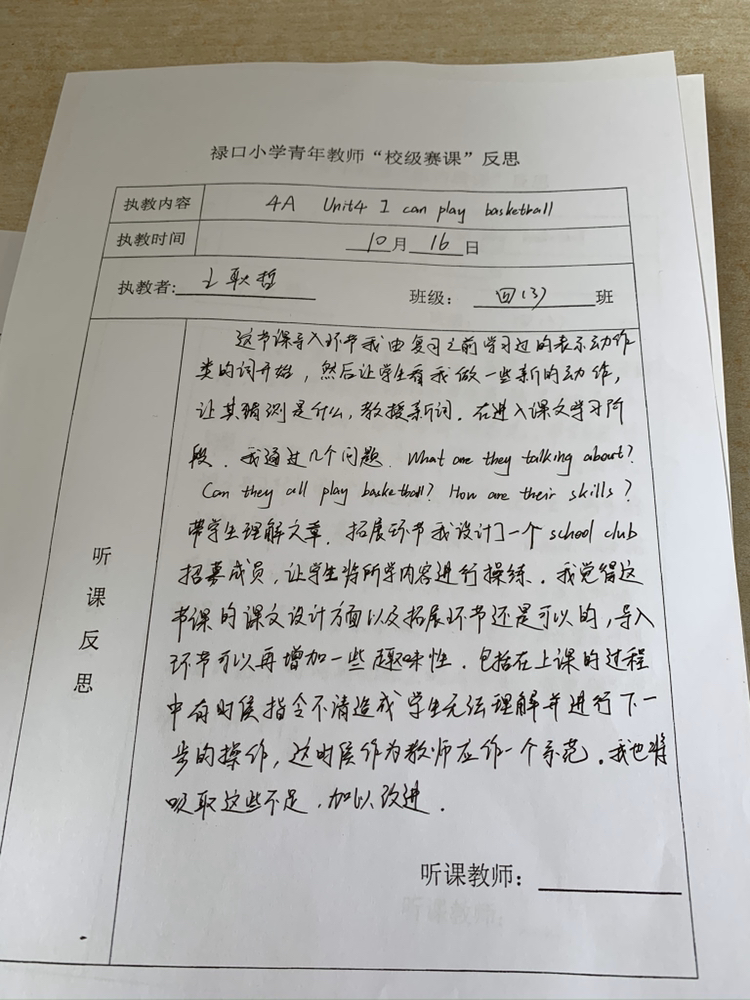 禄口小学青年教师“校级赛课”反思
执教内容 4A Unit4 I can play basketball
执教时间 10月16日
执教者: 王耿哲 班级: 四(3) 班
听课反思
这节课导入环节我由复习之前学习过的表示动作
类的词开始，然后让学生看我做一些新的动作，
让其猜测是什么，教授新词。在进入课文学习阶
段，我通过几个问题. What are they talking about?
Can they all play basketball? How are their skills?
带学生理解文章。拓展环节我设计了一个 school club
招募成员，让学生将所学内容进行操练。我觉得这
节课的课文设计方面以及拓展环节还是可以的，导入
环节可以再增加一些趣味性。包括在上课的过程
中有时候指令不清造成学生无法理解并进行下一
步的操作，这时候作为教师应作一个示范。我也将
吸取这些不足，加以改进.
听课教师:
听课教师: